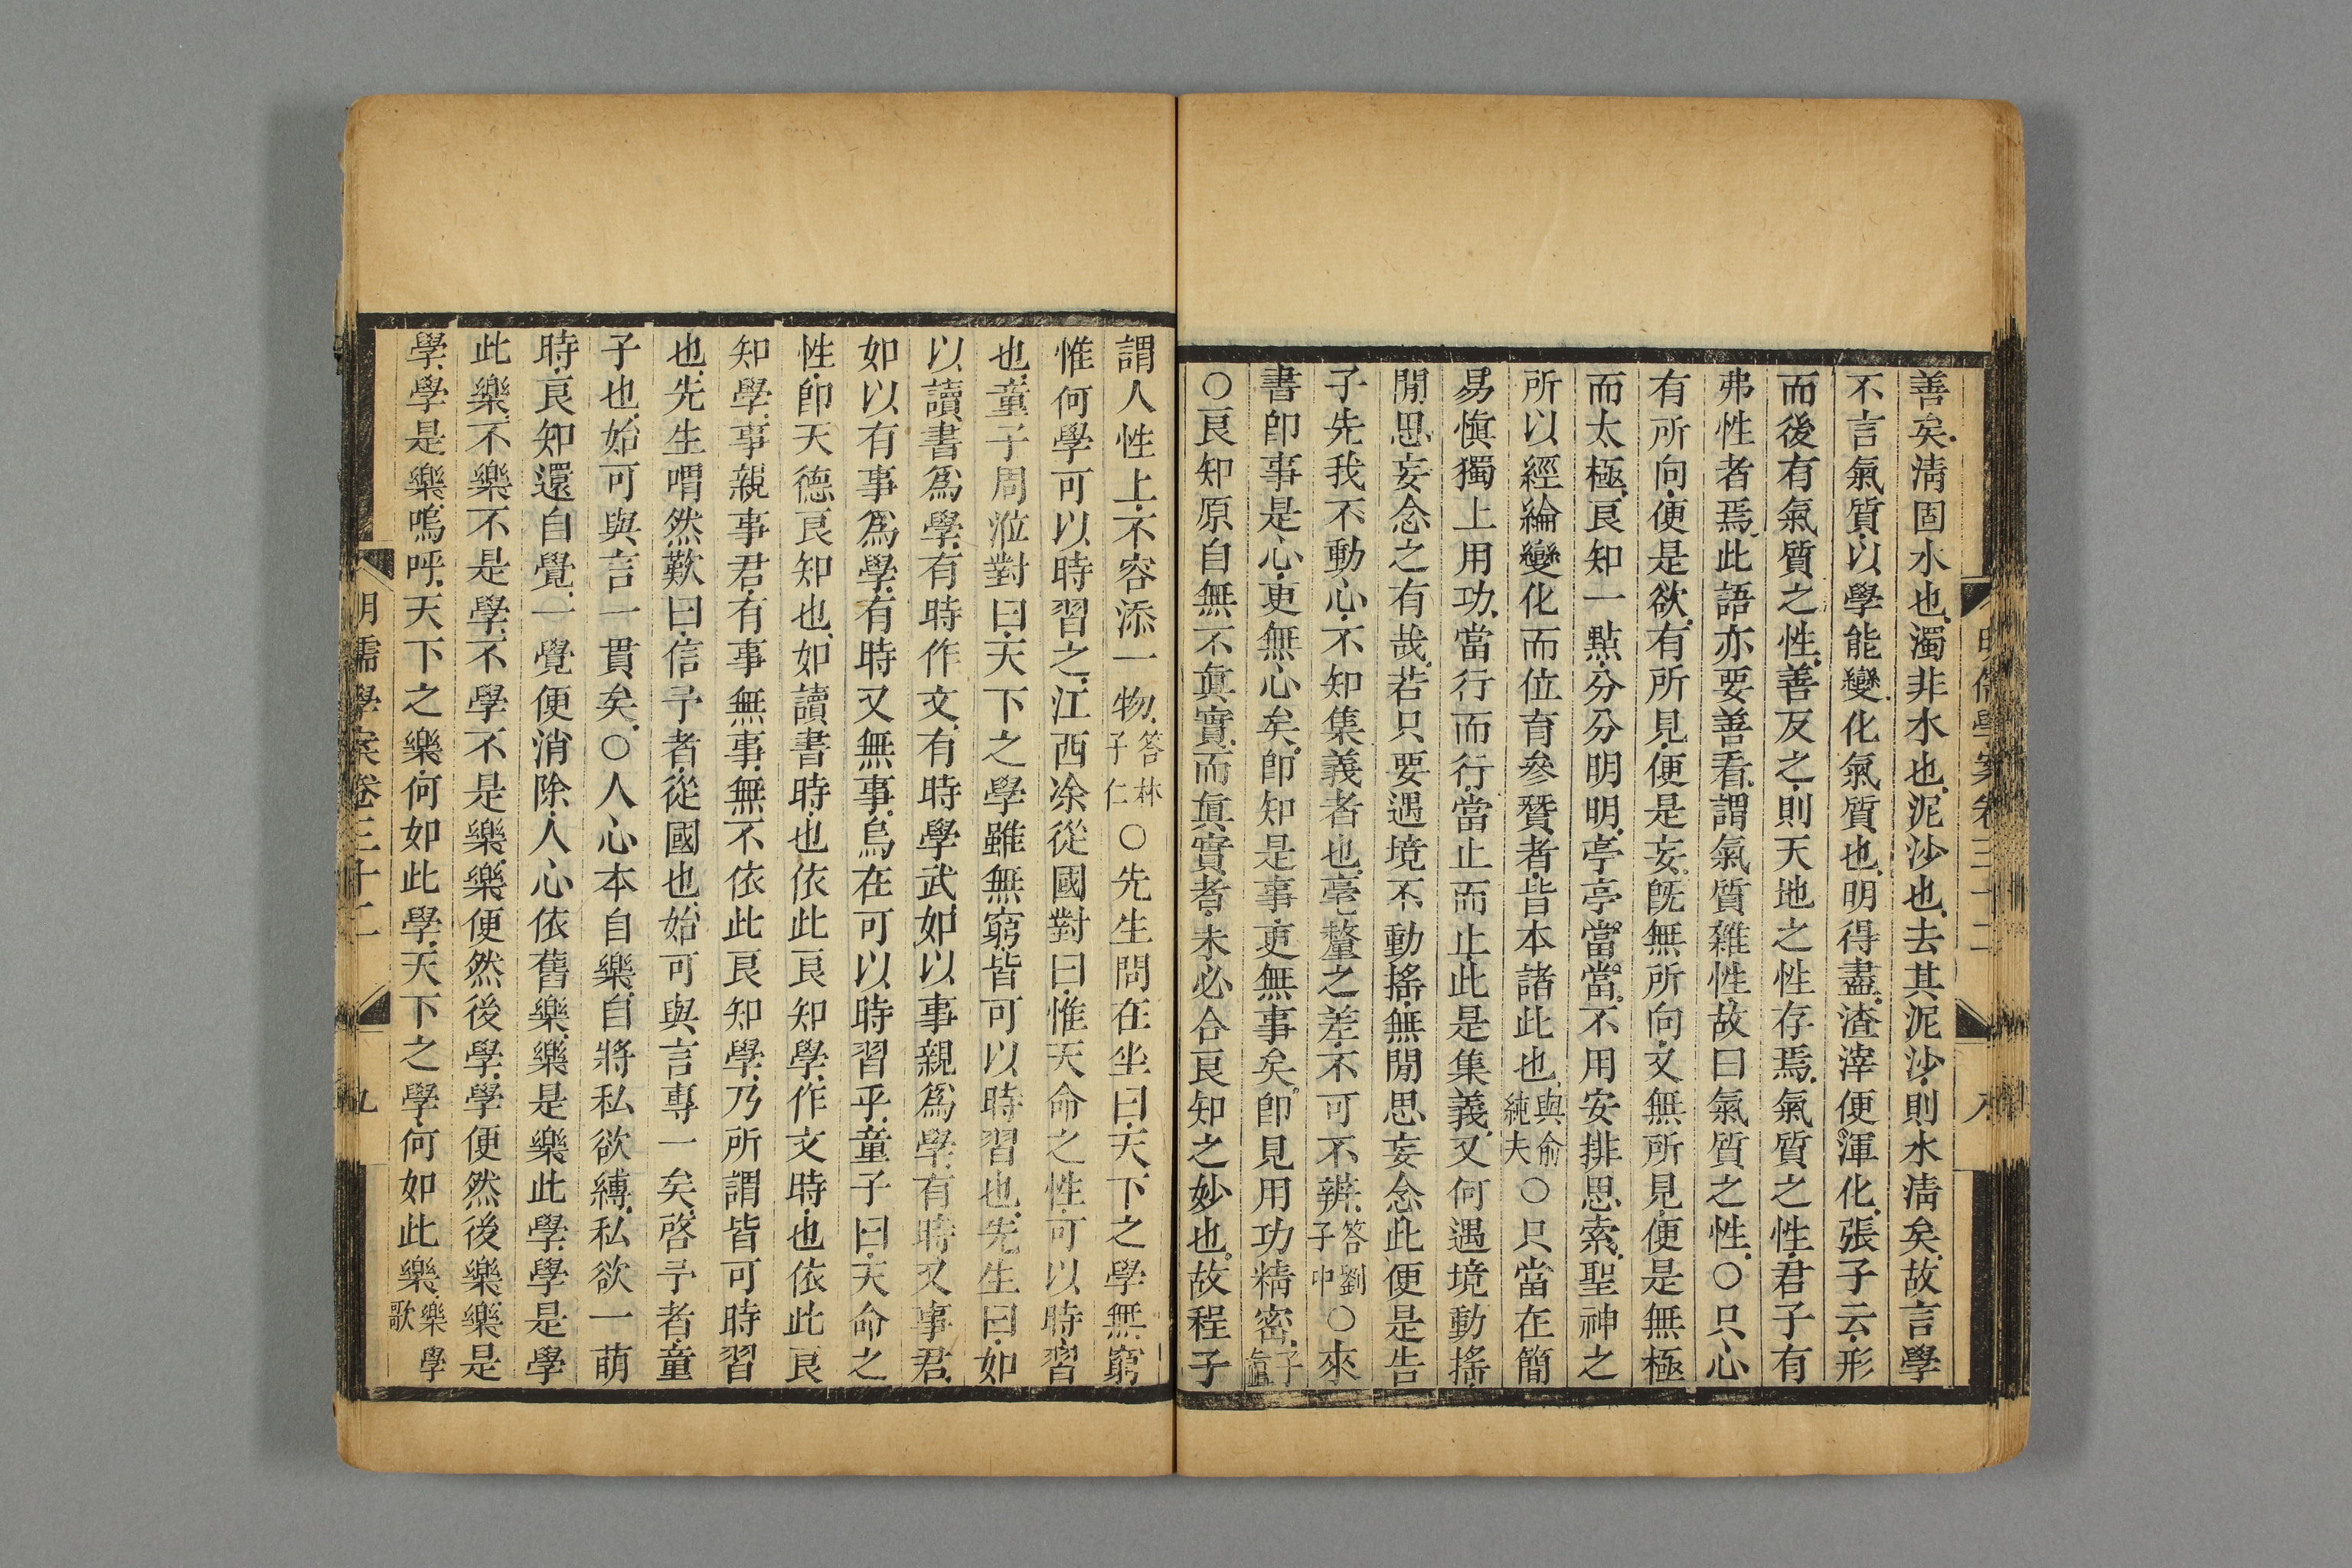 善矣淸固水也濁非水也泥沙也去其泥沙則水淸矣故言學
不言氣質以學能變化氣質也明得盡渣滓便渾化張子云形
而後有氣質之性善反之則天地之性存焉氣質之性君子有
弗性者焉此語亦要善看謂氣質雜性故曰氣質之性○只心
有所向便是欲有所見便是妄旣無所向又無所見便是無極
而太極良知一點分分明明亭亭當當不用安排思索聖神之
所以經綸變化而位育參贊者皆本諸此也與俞純夫○只當在簡
易愼獨上用功當行而行當止而止此是集義又何遇境動搖
閒思妄念之有哉若只要遇境不動搖無閒思妄念此便是告
子先我不動心不知集義者也毫釐之差不可不辨答劉子中○來
書卽事是心更無心矣卽知是事更無事矣卽見用功精密子直
○良知原自無不眞實而眞實者未必合良知之妙也故程子
明儒學案卷三十二
八
謂人性上不容添一物答林子仁○先生問在坐曰天下之學無窮
惟何學可以時習之江西涂從國對曰惟天命之性可以時習
也童子周涖對曰天下之學雖無窮皆可以時習也先生曰如
以讀書爲學有時作文有時學武如以事親爲學有時又事君
如以有事爲學有時又無事烏在可以時習乎童子曰天命之
性卽天德良知也如讀書時也依此良知學作文時也依此良
知學事親事君有事無事無不依此良知學乃所謂皆可時習
也先生喟然歎曰信予者從國也始可與言專一矣啓予者童
子也始可與言一貫矣○人心本自樂自將私欲縛私欲一萌
時良知還自覺一覺便消除人心依舊樂樂是樂此學學是學
此樂不樂不是學不學不是樂樂便然後學學便然後樂樂是
學學是樂嗚呼天下之樂何如此學天下之學何如此樂樂學歌
明儒學案卷三十二
九